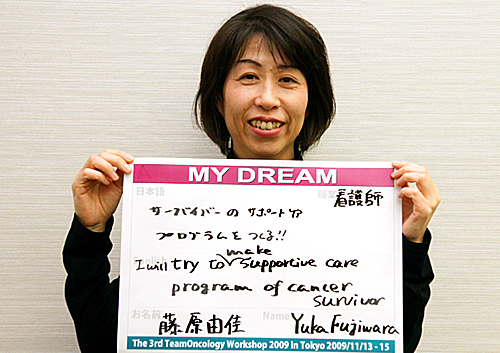 MY DREAM
日本語
看護師
サーバイバーの サポートケア
プログラムをつくる!!
English
I will try to make supportive care
program of cancer
survivor
お名前 Name
藤原由佳 Yuka Fujiwara
The 3rd TeamOncology Workshop 2009 In Tokyo 2009/11/13 - 15